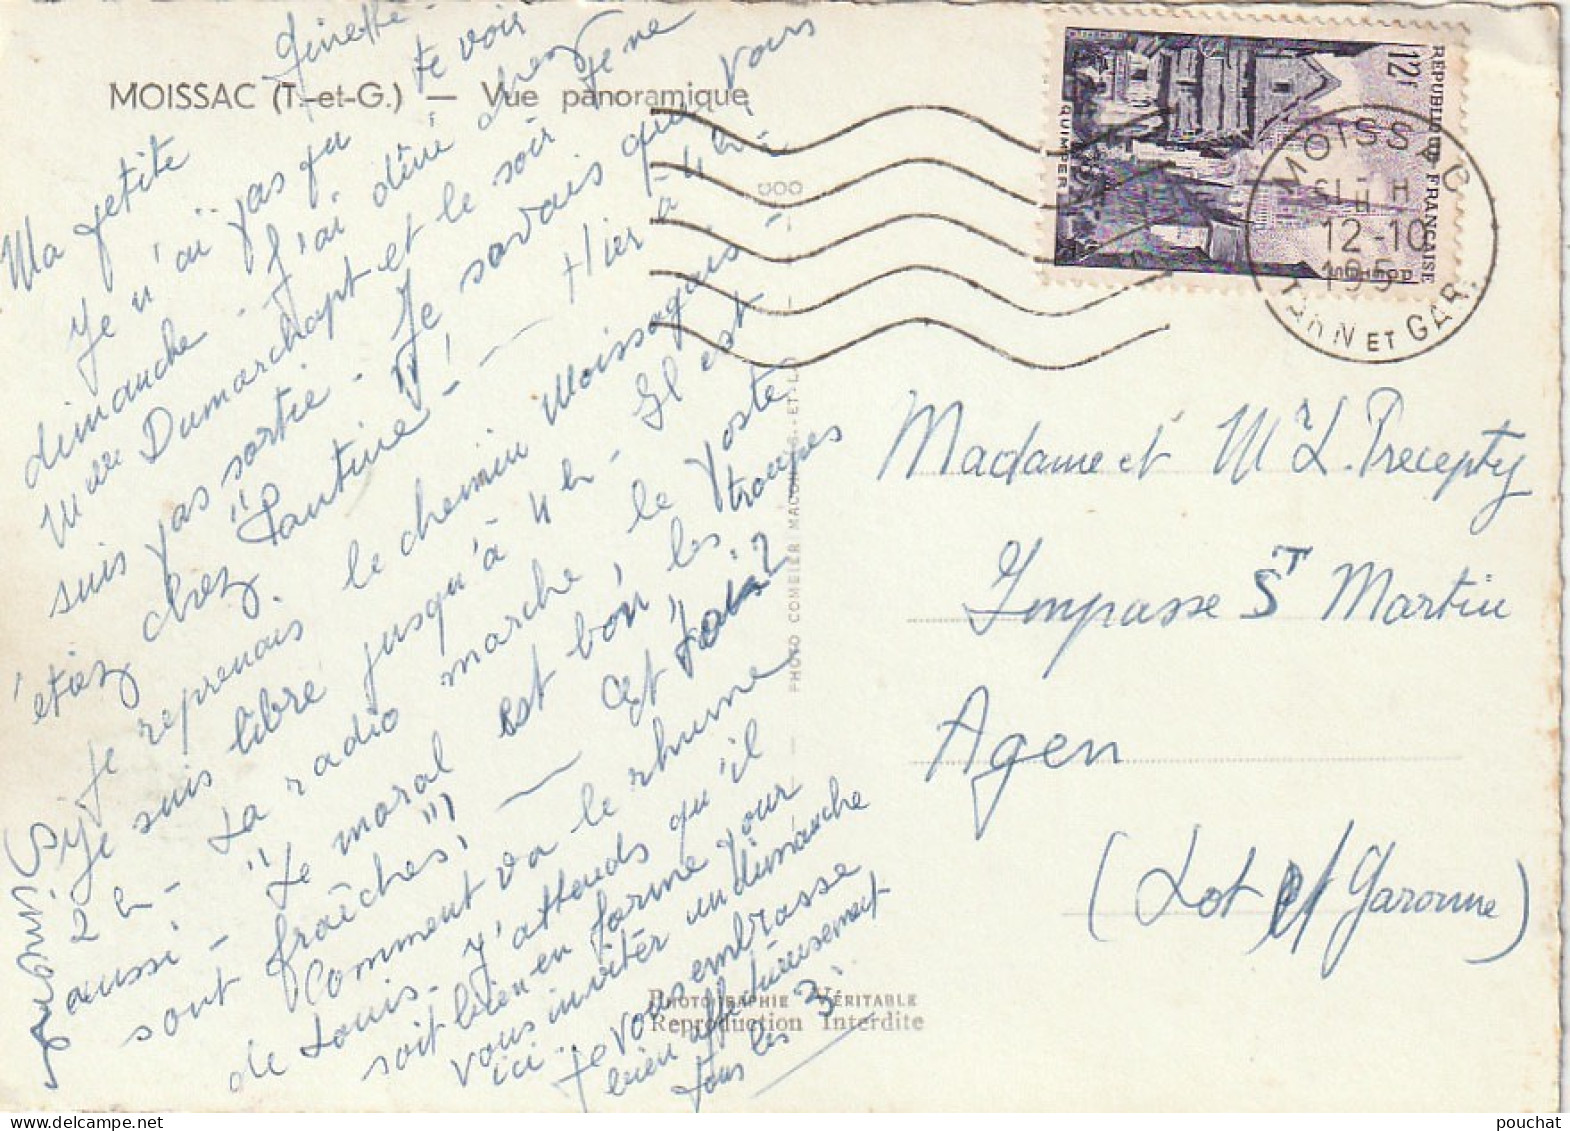 MOISSAC (T.-et-G.) — Vue panoramique
Ma petite Ginette -
Je n'ai pas pu te voir
dimanche - J'ai dîné chez
Mlle Dumarchapt et le soir je ne
suis pas sortie - Je savais que vous
étiez chez "Pantine"! — Hier à 4h -
je reprenais le chemin Moissagais -
Si je suis libre jusqu'à 4h - Il est
2h - La radio marche, le poste
aussi - "Le moral est bon, les troupes
sont fraîches!" — C'est
Comment va le rhume
de Louis - J'attends qu'il
soit bien en forme pour
vous inviter un Dimanche
ici. Je vous embrasse
bien affectueusement
tous les 3.
PHOTO COMBIER MACON
PHOTOGRAPHIE VÉRITABLE
Reproduction Interdite
RÉPUBLIQUE FRANÇAISE
12f
QUIMPER
MOISSAC
12-10
195
TARN ET GAR.
Madame et Mr L. Precepty
Impasse St Martin
Agen
(Lot et Garonne)
pouchat